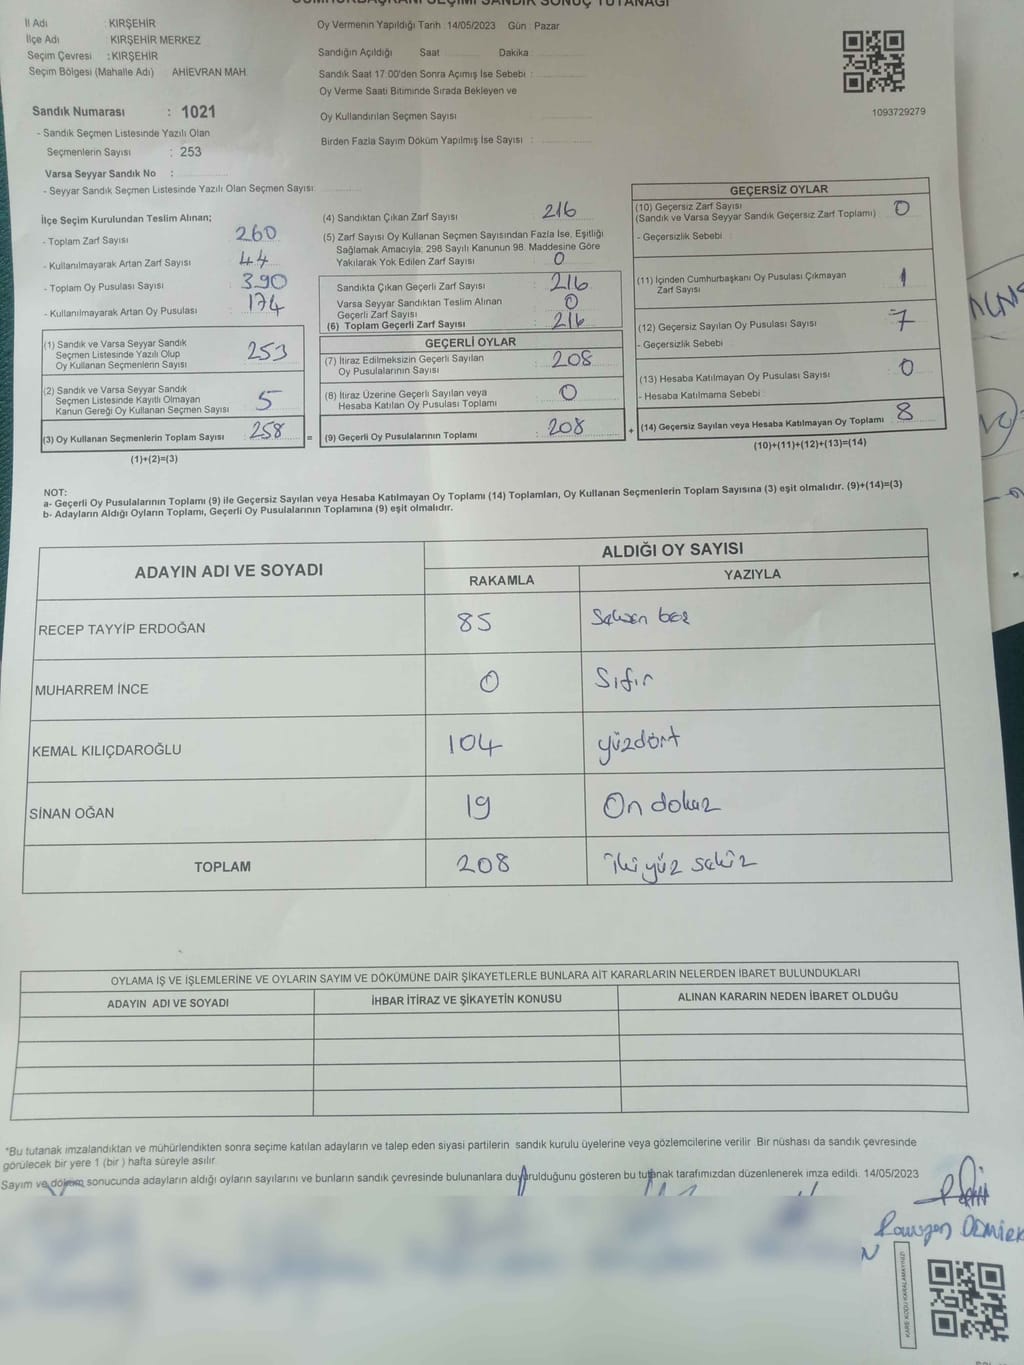 CUMHURBAŞKANI SEÇİMİ SANDIK SONUÇ TUTANAĞI
İl Adı : KIRŞEHİR
İlçe Adı : KIRŞEHİR MERKEZ
Seçim Çevresi : KIRŞEHİR
Seçim Bölgesi (Mahalle Adı) AHİEVRAN MAH.
Sandık Numarası : 1021
- Sandık Seçmen Listesinde Yazılı Olan
Seçmenlerin Sayısı : 253
Varsa Seyyar Sandık No :
- Seyyar Sandık Seçmen Listesinde Yazılı Olan Seçmen Sayısı:
Oy Vermenin Yapıldığı Tarih : 14/05/2023 Gün : Pazar
Sandığın Açıldığı Saat Dakika
Sandık Saat 17.00'den Sonra Açımış İse Sebebi :
Oy Verme Saati Bitiminde Sırada Bekleyen ve
Oy Kullandırılan Seçmen Sayısı
Birden Fazla Sayım Döküm Yapılmış İse Sayısı :
1093729279
İlçe Seçim Kurulundan Teslim Alınan;
- Toplam Zarf Sayısı : 260
- Kullanılmayarak Artan Zarf Sayısı : 44
- Toplam Oy Pusulası Sayısı : 390
- Kullanılmayarak Artan Oy Pusulası : 174
(1) Sandık ve Varsa Seyyar Sandık
Seçmen Listesinde Yazılı Olup
Oy Kullanan Seçmenlerin Sayısı : 253
(2) Sandık ve Varsa Seyyar Sandık
Seçmen Listesinde Kayıtlı Olmayan
Kanun Gereği Oy Kullanan Seçmen Sayısı : 5
(3) Oy Kullanan Seçmenlerin Toplam Sayısı : 258 =
(1)+(2)=(3)
(4) Sandıktan Çıkan Zarf Sayısı : 216
(5) Zarf Sayısı Oy Kullanan Seçmen Sayısından Fazla İse, Eşitliği
Sağlamak Amacıyla, 298 Sayılı Kanunun 98. Maddesine Göre
Yakılarak Yok Edilen Zarf Sayısı : 0
Sandıkta Çıkan Geçerli Zarf Sayısı : 216
Varsa Seyyar Sandıktan Teslim Alınan
Geçerli Zarf Sayısı : 0
(6) Toplam Geçerli Zarf Sayısı : 216
GEÇERLİ OYLAR
(7) İtiraz Edilmeksizin Geçerli Sayılan
Oy Pusulalarının Sayısı : 208
(8) İtiraz Üzerine Geçerli Sayılan veya
Hesaba Katılan Oy Pusulası Toplamı : 0
(9) Geçerli Oy Pusulalarının Toplamı : 208 +
GEÇERSİZ OYLAR
(10) Geçersiz Zarf Sayısı
(Sandık ve Varsa Seyyar Sandık Geçersiz Zarf Toplamı) : 0
- Geçersizlik Sebebi :
(11) İçinden Cumhurbaşkanı Oy Pusulası Çıkmayan
Zarf Sayısı : 1
(12) Geçersiz Sayılan Oy Pusulası Sayısı : 7
- Geçersizlik Sebebi :
(13) Hesaba Katılmayan Oy Pusulası Sayısı : 0
- Hesaba Katılmama Sebebi :
(14) Geçersiz Sayılan veya Hesaba Katılmayan Oy Toplamı : 8
(10)+(11)+(12)+(13)=(14)
NOT:
a- Geçerli Oy Pusulalarının Toplamı (9) ile Geçersiz Sayılan veya Hesaba Katılmayan Oy Toplamı (14) Toplamları, Oy Kullanan Seçmenlerin Toplam Sayısına (3) eşit olmalıdır. (9)+(14)=(3)
b- Adayların Aldığı Oyların Toplamı, Geçerli Oy Pusulalarının Toplamına (9) eşit olmalıdır.
ADAYIN ADI VE SOYADI ALDIĞI OY SAYISI
RAKAMLA YAZIYLA
RECEP TAYYİP ERDOĞAN 85 Seksen beş
MUHARREM İNCE 0 Sıfır
KEMAL KILIÇDAROĞLU 104 yüzdört
SİNAN OĞAN 19 On dokuz
TOPLAM 208 ikiyüz sekiz
OYLAMA İŞ VE İŞLEMLERİNE VE OYLARIN SAYIM VE DÖKÜMÜNE DAİR ŞİKAYETLERLE BUNLARA AİT KARARLARIN NELERDEN İBARET BULUNDUKLARI
ADAYIN ADI VE SOYADI İHBAR İTİRAZ VE ŞİKAYETİN KONUSU ALINAN KARARIN NEDEN İBARET OLDUĞU
*Bu tutanak imzalandıktan ve mühürlendikten sonra seçime katılan adayların ve talep eden siyasi partilerin sandık kurulu üyelerine veya gözlemcilerine verilir. Bir nüshası da sandık çevresinde
görülecek bir yere 1 (bir) hafta süreyle asılır.
Sayım ve döküm sonucunda adayların aldığı oyların sayılarını ve bunların sandık çevresinde bulunanlara duyurulduğunu gösteren bu tutanak tarafımızdan düzenlenerek imza edildi. 14/05/2023
KARE KODU KARALAMAYINIZ!